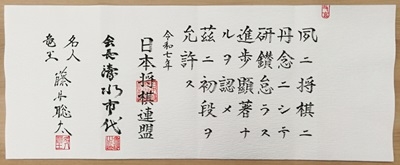 夙ニ将棋ニ
丹念ニシテ
研鑽怠ラス
進歩顕著ナ
ルヲ認メ
茲ニ初段ヲ
允許ス
令和七年
日本将棋連盟
会長 清水市代
名人
竜王 藤井聡太